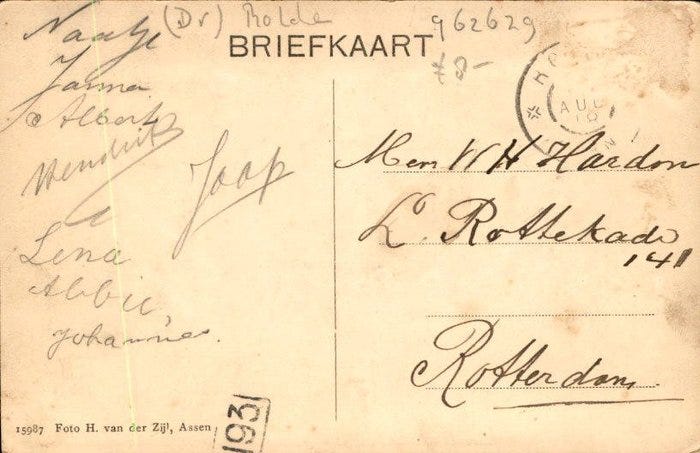 (Dr) Rolde
962629
BRIEFKAART
f 8-
Naatje
Janna
Albert
Hendrik
Jaap
Lena
Abbie
Johannes.
AUG
Men W H Hardon
L. Rottekade
141
Rotterdam
15987 Foto H. van der Zijl, Assen
1931